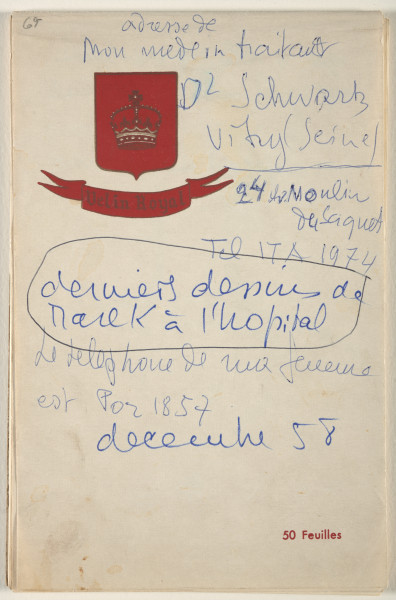 69
adresse de
mon medecin traitant
Dr Schwartz
Vitry (Seine)
24 Moulin
de Saquet
Tel ITA 1974
Velin Royal
derniers dessins de
Marek à l'hopital
Le telephone de ma femme
est Por 1857
decembre 58
50 Feuilles